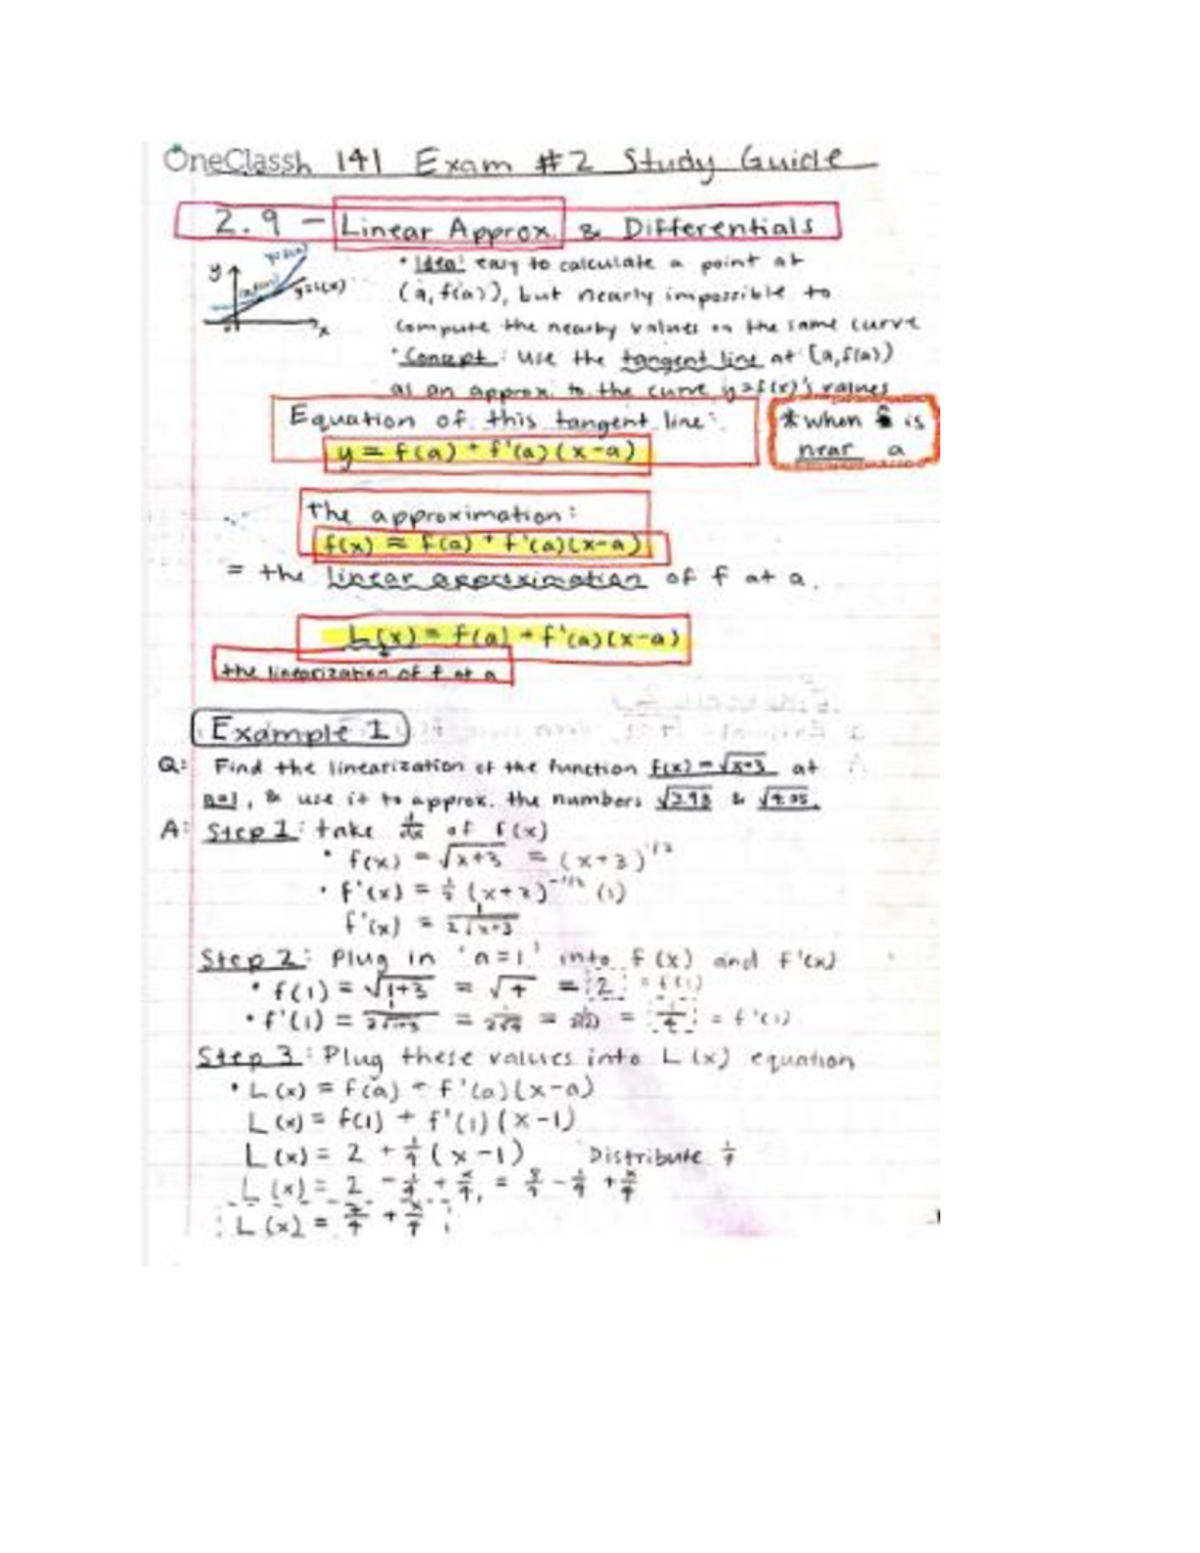 OneClassh 141 Exam #2 Study Guide
2.9 - Linear Approx. & Differentials
y
x
y=L(x)
• Idea: easy to calculate a point at
(a, f(a)), but nearly impossible to
compute the nearby values on the same curve
• Concept: Use the tangent line at (a, f(a))
as an approx. to the curve y=f(x)'s values
Equation of this tangent line:
y = f(a) + f'(a)(x-a)
* when is
near a
the approximation:
f(x) ≈ f(a) + f'(a)(x-a)
= the linear approximation of f at a.
L(x) = f(a) + f'(a)(x-a)
the linearization of f at a
Example 1
Q: Find the linearization of the function f(x) = √x+3 at
a=1, & use it to approx. the numbers √3.98 & √4.05.
A: Step 1: take d/dx of f(x)
• f(x) = √x+3 = (x+3)^1/2
• f'(x) = 1/2 (x+3)^-1/2 (1)
f'(x) = 1/2√x+3
Step 2: Plug in 'a=1' into f(x) and f'(x)
• f(1) = √1+3 = √4 = 2 = f(1)
• f'(1) = 1/2√1+3 = 1/2√4 = 1/2(2) = 1/4 = f'(1)
Step 3: Plug these values into L(x) equation
• L(x) = f(a) + f'(a)(x-a)
L(x) = f(1) + f'(1)(x-1)
L(x) = 2 + 1/4(x-1) Distribute 1/4
L(x) = 2 - 1/4 + x/4, = 8/4 - 1/4 + x/4
L(x) = 7/4 + x/4